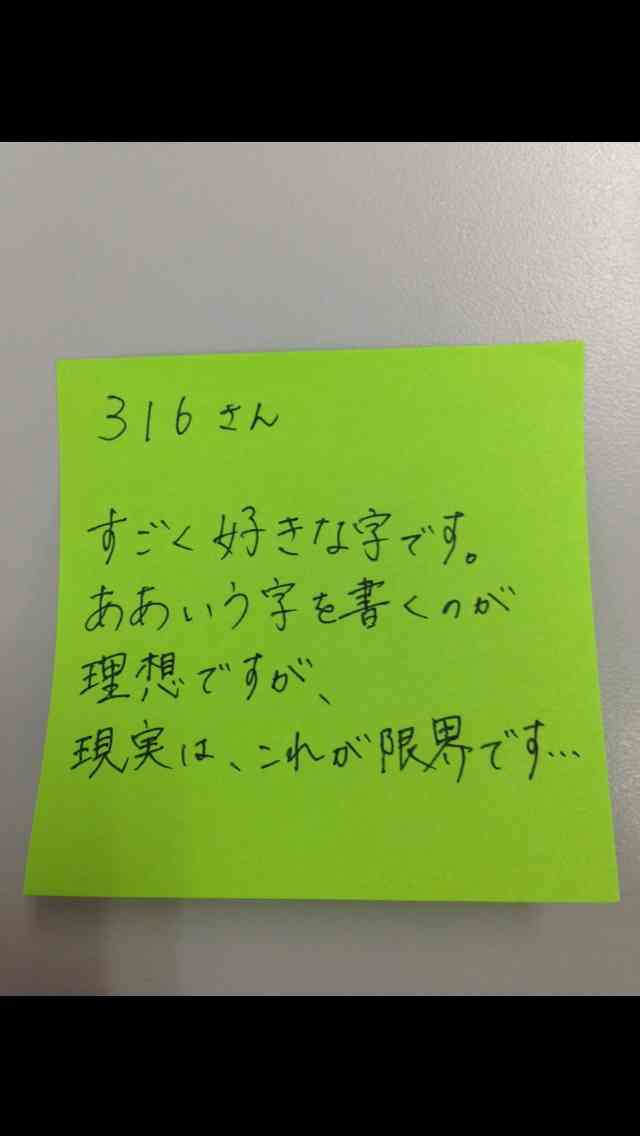 316さん
すごく好きな字です。
ああいう字を書くのが
理想ですが、
現実は、これが限界です…